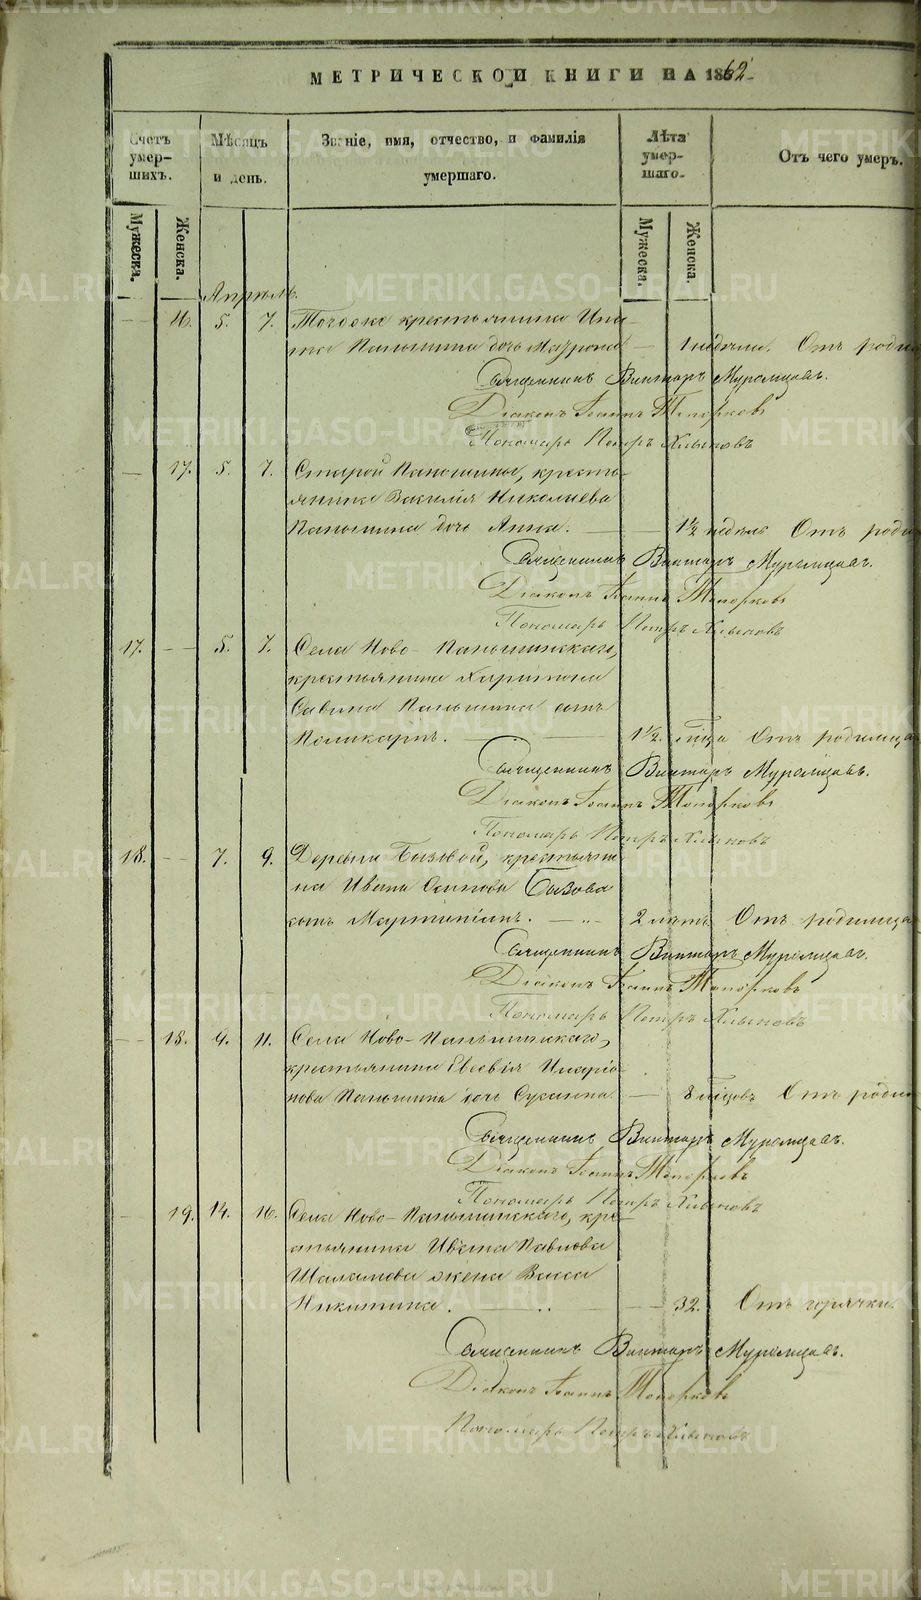 МЕТРИЧЕСКОЙ КНИГИ НА 1862
Счетъ умер- шихъ.
Мѣсяцъ и день.
Званіе, имя, отчество, и фамилія умершаго.
Лѣта умер- шаго.
Отъ чего умеръ.
Мужеска.
Женска.
Мужеска.
Женска.
Апрѣль.
— 16. 5. 7. крестьянина Ипа-
та Паньшина дочь — 1 недѣли. Отъ роди
Священникъ Викторъ Муромцовъ.
Діаконъ Іоаннъ Топорковъ
Пономарь Петръ Хлыновъ
— 17. 5. 7. Старой Паньшины, кресть-
янина Василія Николаева
Паньшина дочь Анна. — 1½ недѣль Отъ роди
Священникъ Викторъ Муромцовъ.
Діаконъ Іоаннъ Топорковъ
Пономарь Петръ Хлыновъ
17. — 5. 7. Села Ново-Паньшинскаго,
крестьянина Харитона
Савина Паньшина сынъ
Поликарпъ. — 1½ мѣсца Отъ родимца
Священникъ Викторъ Муромцовъ.
Діаконъ Іоаннъ Топорковъ
Пономарь Петръ Хлыновъ
18. — 7. 9. Деревни Бызовой, крестьяни-
на Ивана Осипова Бызова
сынъ Мартиніанъ. — 2 лѣтъ Отъ родимца
Священникъ Викторъ Муромцовъ.
Діаконъ Іоаннъ Топорковъ
Пономарь Петръ Хлыновъ
— 18. 9. 11. Села Ново-Паньшинскаго,
крестьянина Евсевія Иларіо-
нова Паньшина дочь Сусанна. — 8 мѣсцовъ Отъ роди
Священникъ Викторъ Муромцовъ.
Діаконъ Іоаннъ Топорковъ
Пономарь Петръ Хлыновъ
— 19. 14. 16. Села Ново-Паньшинскаго, кре-
стьянина Ивана Павлова
Шаламова жена Васса
Никитина. — 32. Отъ горячки.
Священникъ Викторъ Муромцовъ.
Діаконъ Іоаннъ Топорковъ
Пономарь Петръ Хлыновъ
METRIKI.GASO-URAL.RU